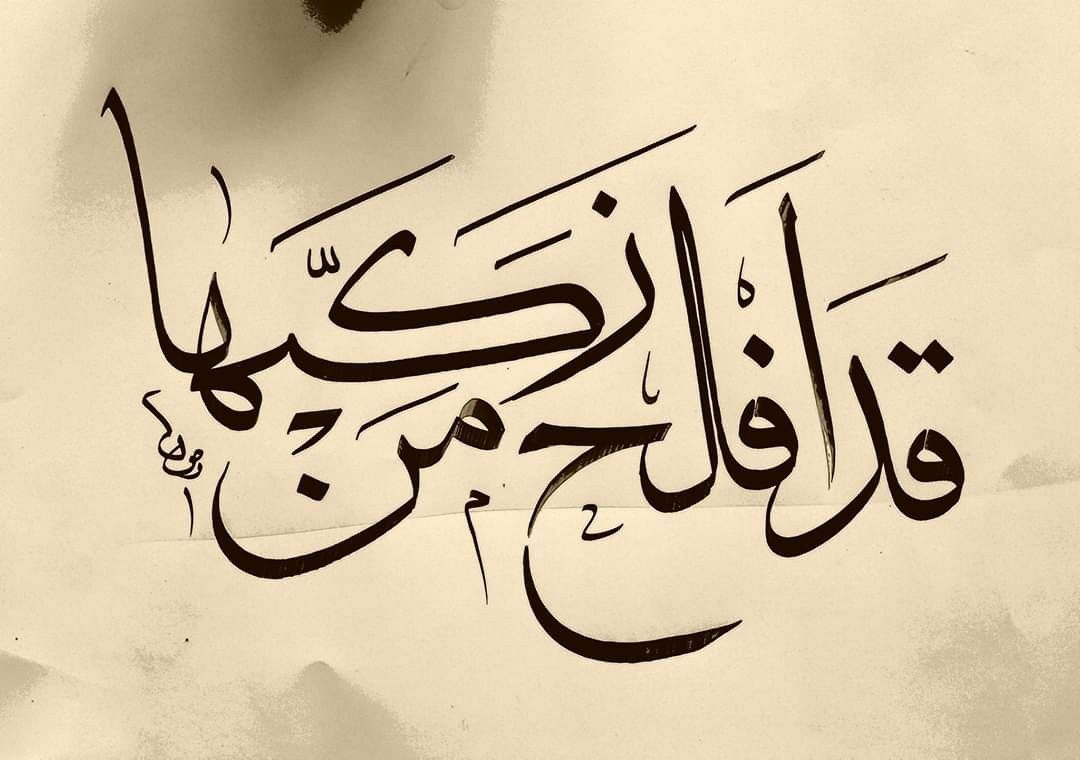 قد افلح من زكىها